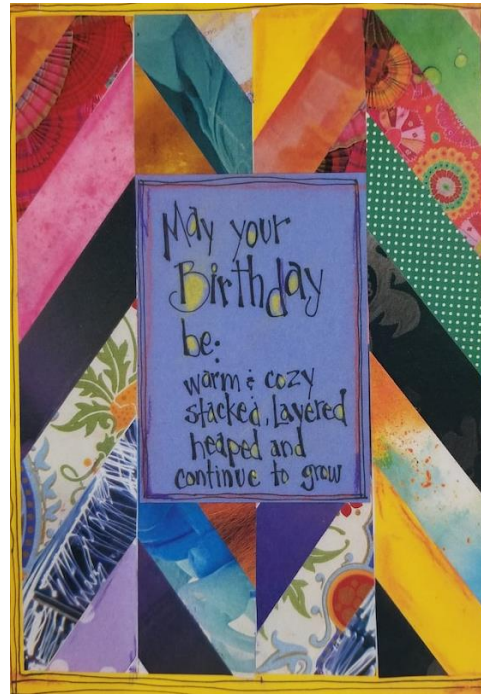 May your
Birthday
be:
warm & cozy
stacked, Layered
heaped and
continue to grow